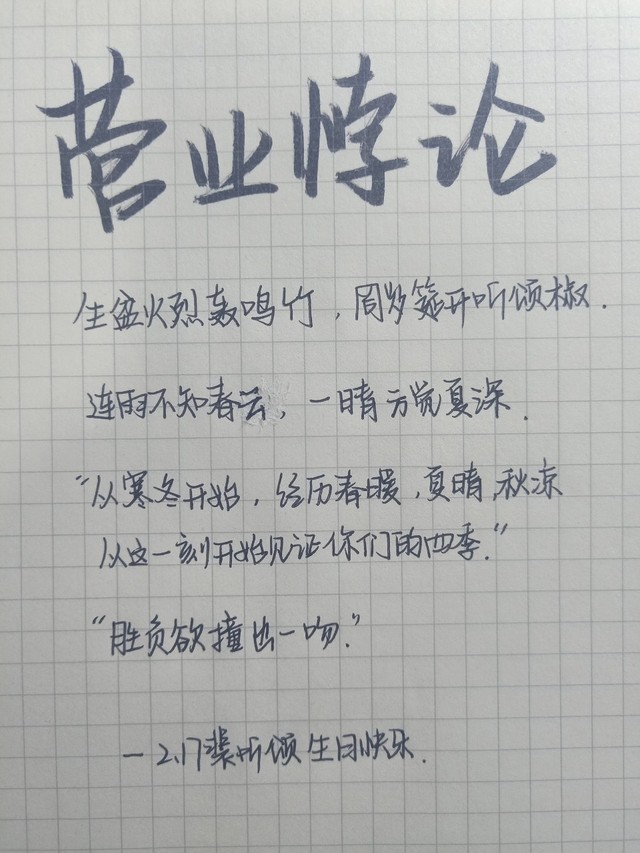 营业悖论
生盛火烈轰鸣竹，周岁筵开听颂椒.
连雨不知春去，一晴方觉夏深.
“从寒冬开始，经历春暖，夏晴，秋凉
从这一刻开始见证你们的四季.”
“胜负欲撞出一吻.”
—2.17裴听颂生日快乐.